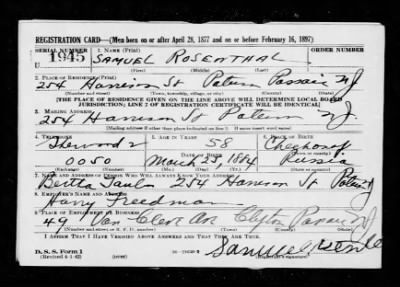 REGISTRATION CARD—(Men born on or after April 28, 1877 and on or before February 16, 1897)
SERIAL NUMBER 1. NAME (Print) ORDER NUMBER
1945 SAMUEL ROSENTHAL
(First) (Middle) (Last)
2. PLACE OF RESIDENCE (Print)
254 Harrison St Passaic N J
(Number and street) (Town, township, village, or city) (County) (State)
[THE PLACE OF RESIDENCE GIVEN ON THE LINE ABOVE WILL DETERMINE LOCAL BOARD
JURISDICTION; LINE 2 OF REGISTRATION CERTIFICATE WILL BE IDENTICAL]
3. MAILING ADDRESS
254 Harrison St N J
[Mailing address if other than place indicated on line 2. If same insert word same]
4. TELEPHONE 5. AGE IN YEARS 6. PLACE OF BIRTH
Sherwood 2 58
DATE OF BIRTH
0050 March 25, 1884 Russia
(Exchange) (Number) (Mo.) (Day) (Yr.) (State or country)
7. NAME AND ADDRESS OF PERSON WHO WILL ALWAYS KNOW YOUR ADDRESS
Bertha 254 Harrison St
8. EMPLOYER'S NAME AND ADDRESS
Harry Freedman
9. PLACE OF EMPLOYMENT OR BUSINESS
49 Van Cleve Ave Clifton Passaic N J
(Number and street or R. F. D. number) (Town) (County) (State)
I AFFIRM THAT I HAVE VERIFIED ABOVE ANSWERS AND THAT THEY ARE TRUE.
D. S. S. Form 1
(Revised 4-1-42) (over)
Samuel